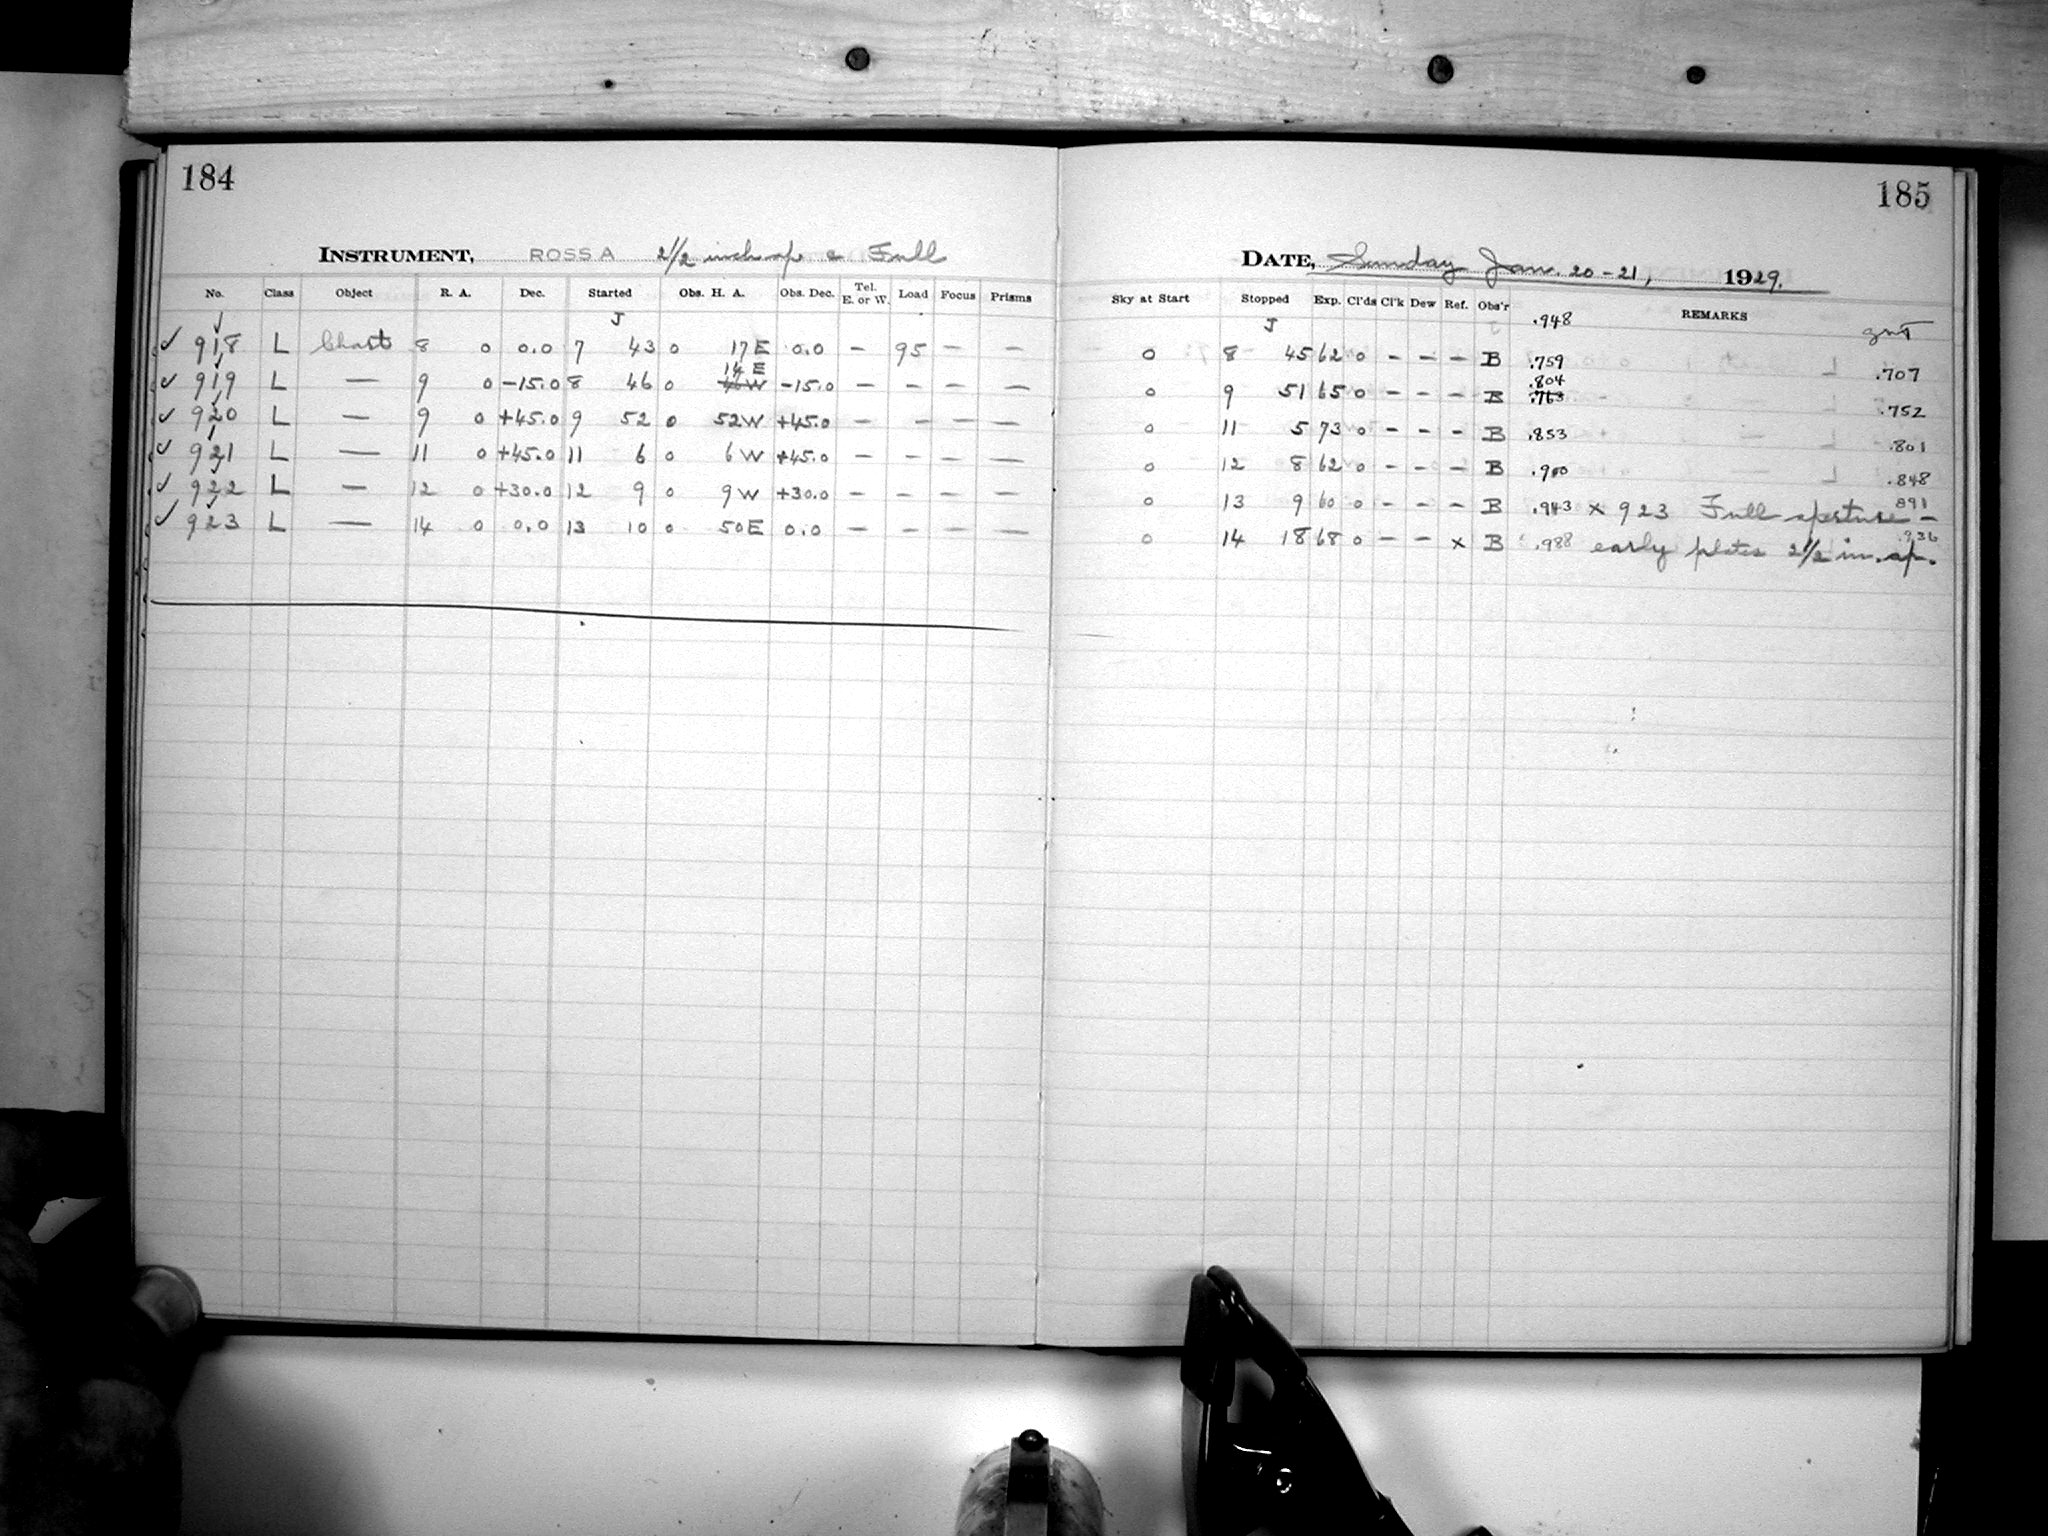 184
INSTRUMENT, ROSS A 2 1/2 inch ap & Full
No. Class Object R. A. Dec. Started Obs. H. A. Obs. Dec. Tel. E. or W. Load Focus Prisms
J
✓ 918 L Chart 8 0 0.0 7 43 0 17 E 0.0 – 95 – –
14 E
✓ 919 L — 9 0 -15.0 8 46 0 -15.0 – – – –
✓ 920 L — 9 0 +45.0 9 52 0 52 W +45.0 – – – –
✓ 921 L — 11 0 +45.0 11 6 0 6 W +45.0 – – – –
✓ 922 L — 12 0 +30.0 12 9 0 9 W +30.0 – – – –
✓ 923 L — 14 0 0.0 13 10 0 50 E 0.0 – – – –
185
DATE, Sunday Jan. 20-21, 1929.
Sky at Start Stopped Exp. Cl'ds Cl'k Dew Ref. Obs'r REMARKS
J .948 GMT
0 8 45 62 0 – – – B .759 .707
.804
0 9 51 65 0 – – – B .763 .752
0 11 5 73 0 – – – B .853 .801
0 12 8 62 0 – – – B .900 .848
0 13 9 60 0 – – – B .943 x 923 Full aperture – 891
0 14 18 68 0 – – x B .988 early plates 2 1/2 in. ap. .936